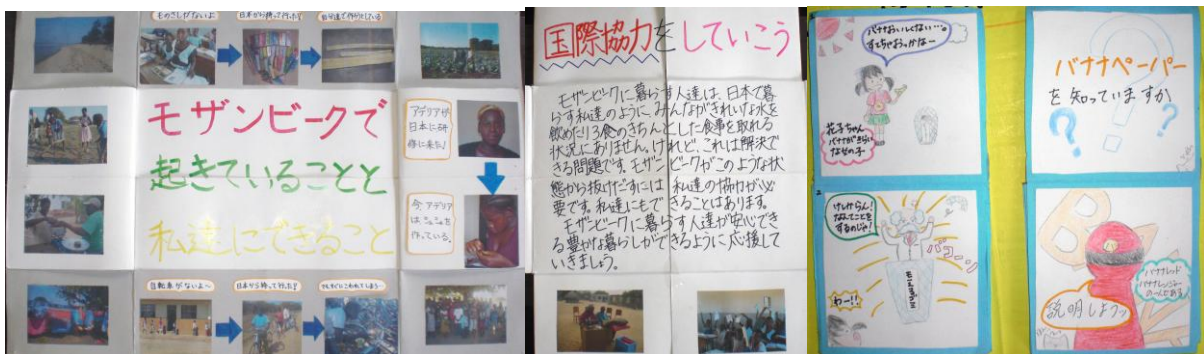 ものさしがないよ
日本から持って行った!
自分達で作りだしている
モザンビークで
起きていることと
私達にできること
アデリアが
日本に研
修に来た!
今アデリア
は
作っている。
自転車がないよ〜
日本から持って行った!
国際協力をしていこう
モザンビークに暮らす人達は、日本で暮
らす私達のようにみんながきれいな水を
飲めたり3食のきちんとした食事を取れる
状況にありません。けれど、これは解決で
きる問題です。モザンビークがこのような状
態から抜けだすには 私達の協力が必
要です。私達にもできることはあります。
モザンビークに暮らす人達が安心でき
る豊かな暮らしができるように応援して
いきましょう。
バナナおいしくない…。
すてちゃおっかなー
花子ちゃん
バナナがきらい
なせの子
バナナペーパー
を知っていますか
?
?
?
2
けしからん!
なんてことを
するのじゃ!
わー!!
バナナレッド
バナナレンジャー
の一人である
説明しようッ